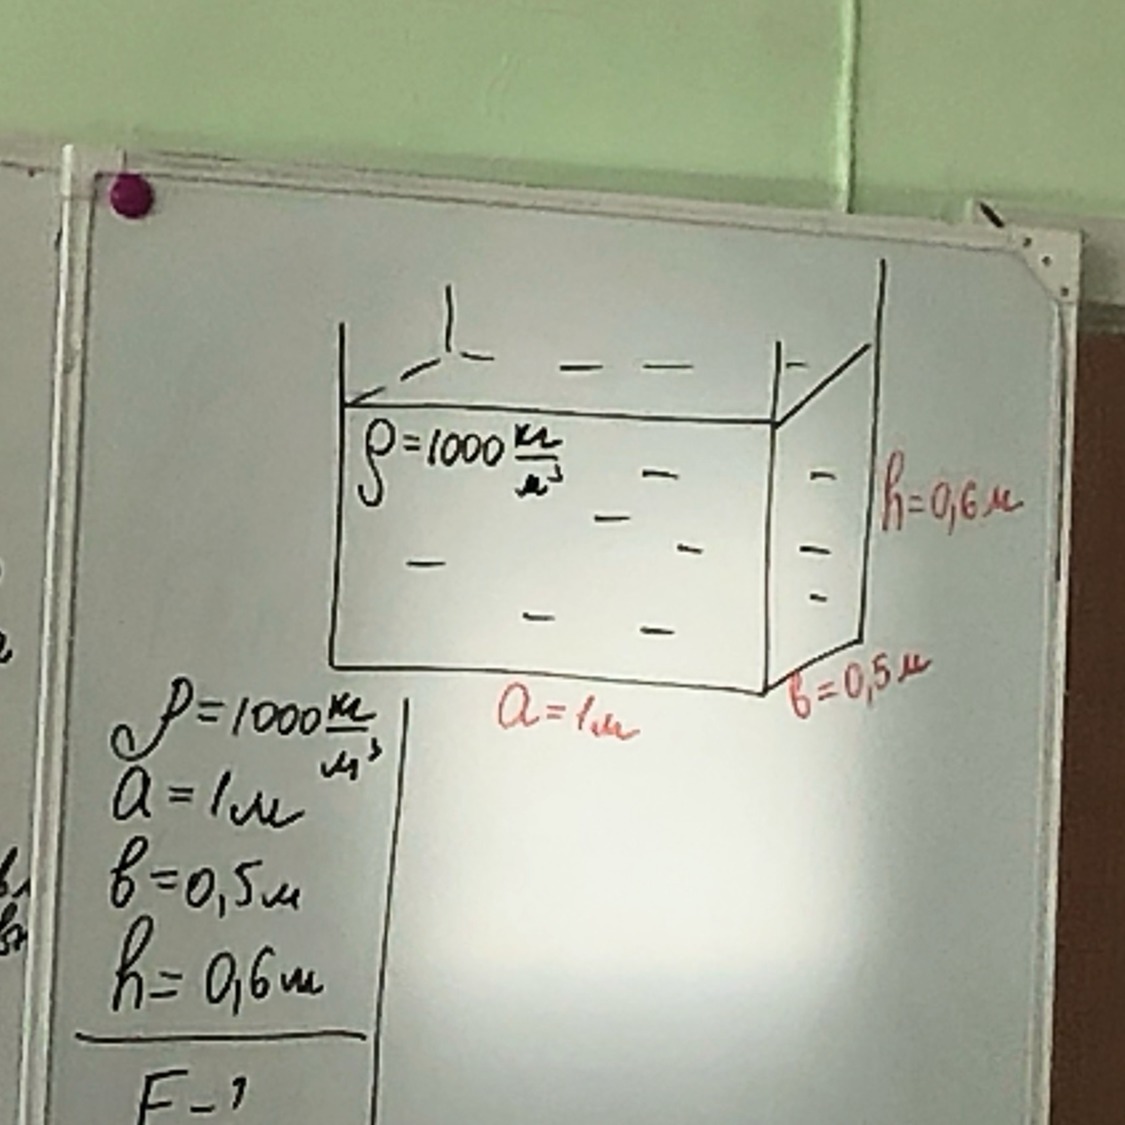 ρ=1000 кг/м³
h=0,6м
a=1м
в=0,5м
ρ=1000 кг/м³
a=1м
в=0,5м
h=0,6м
F-?